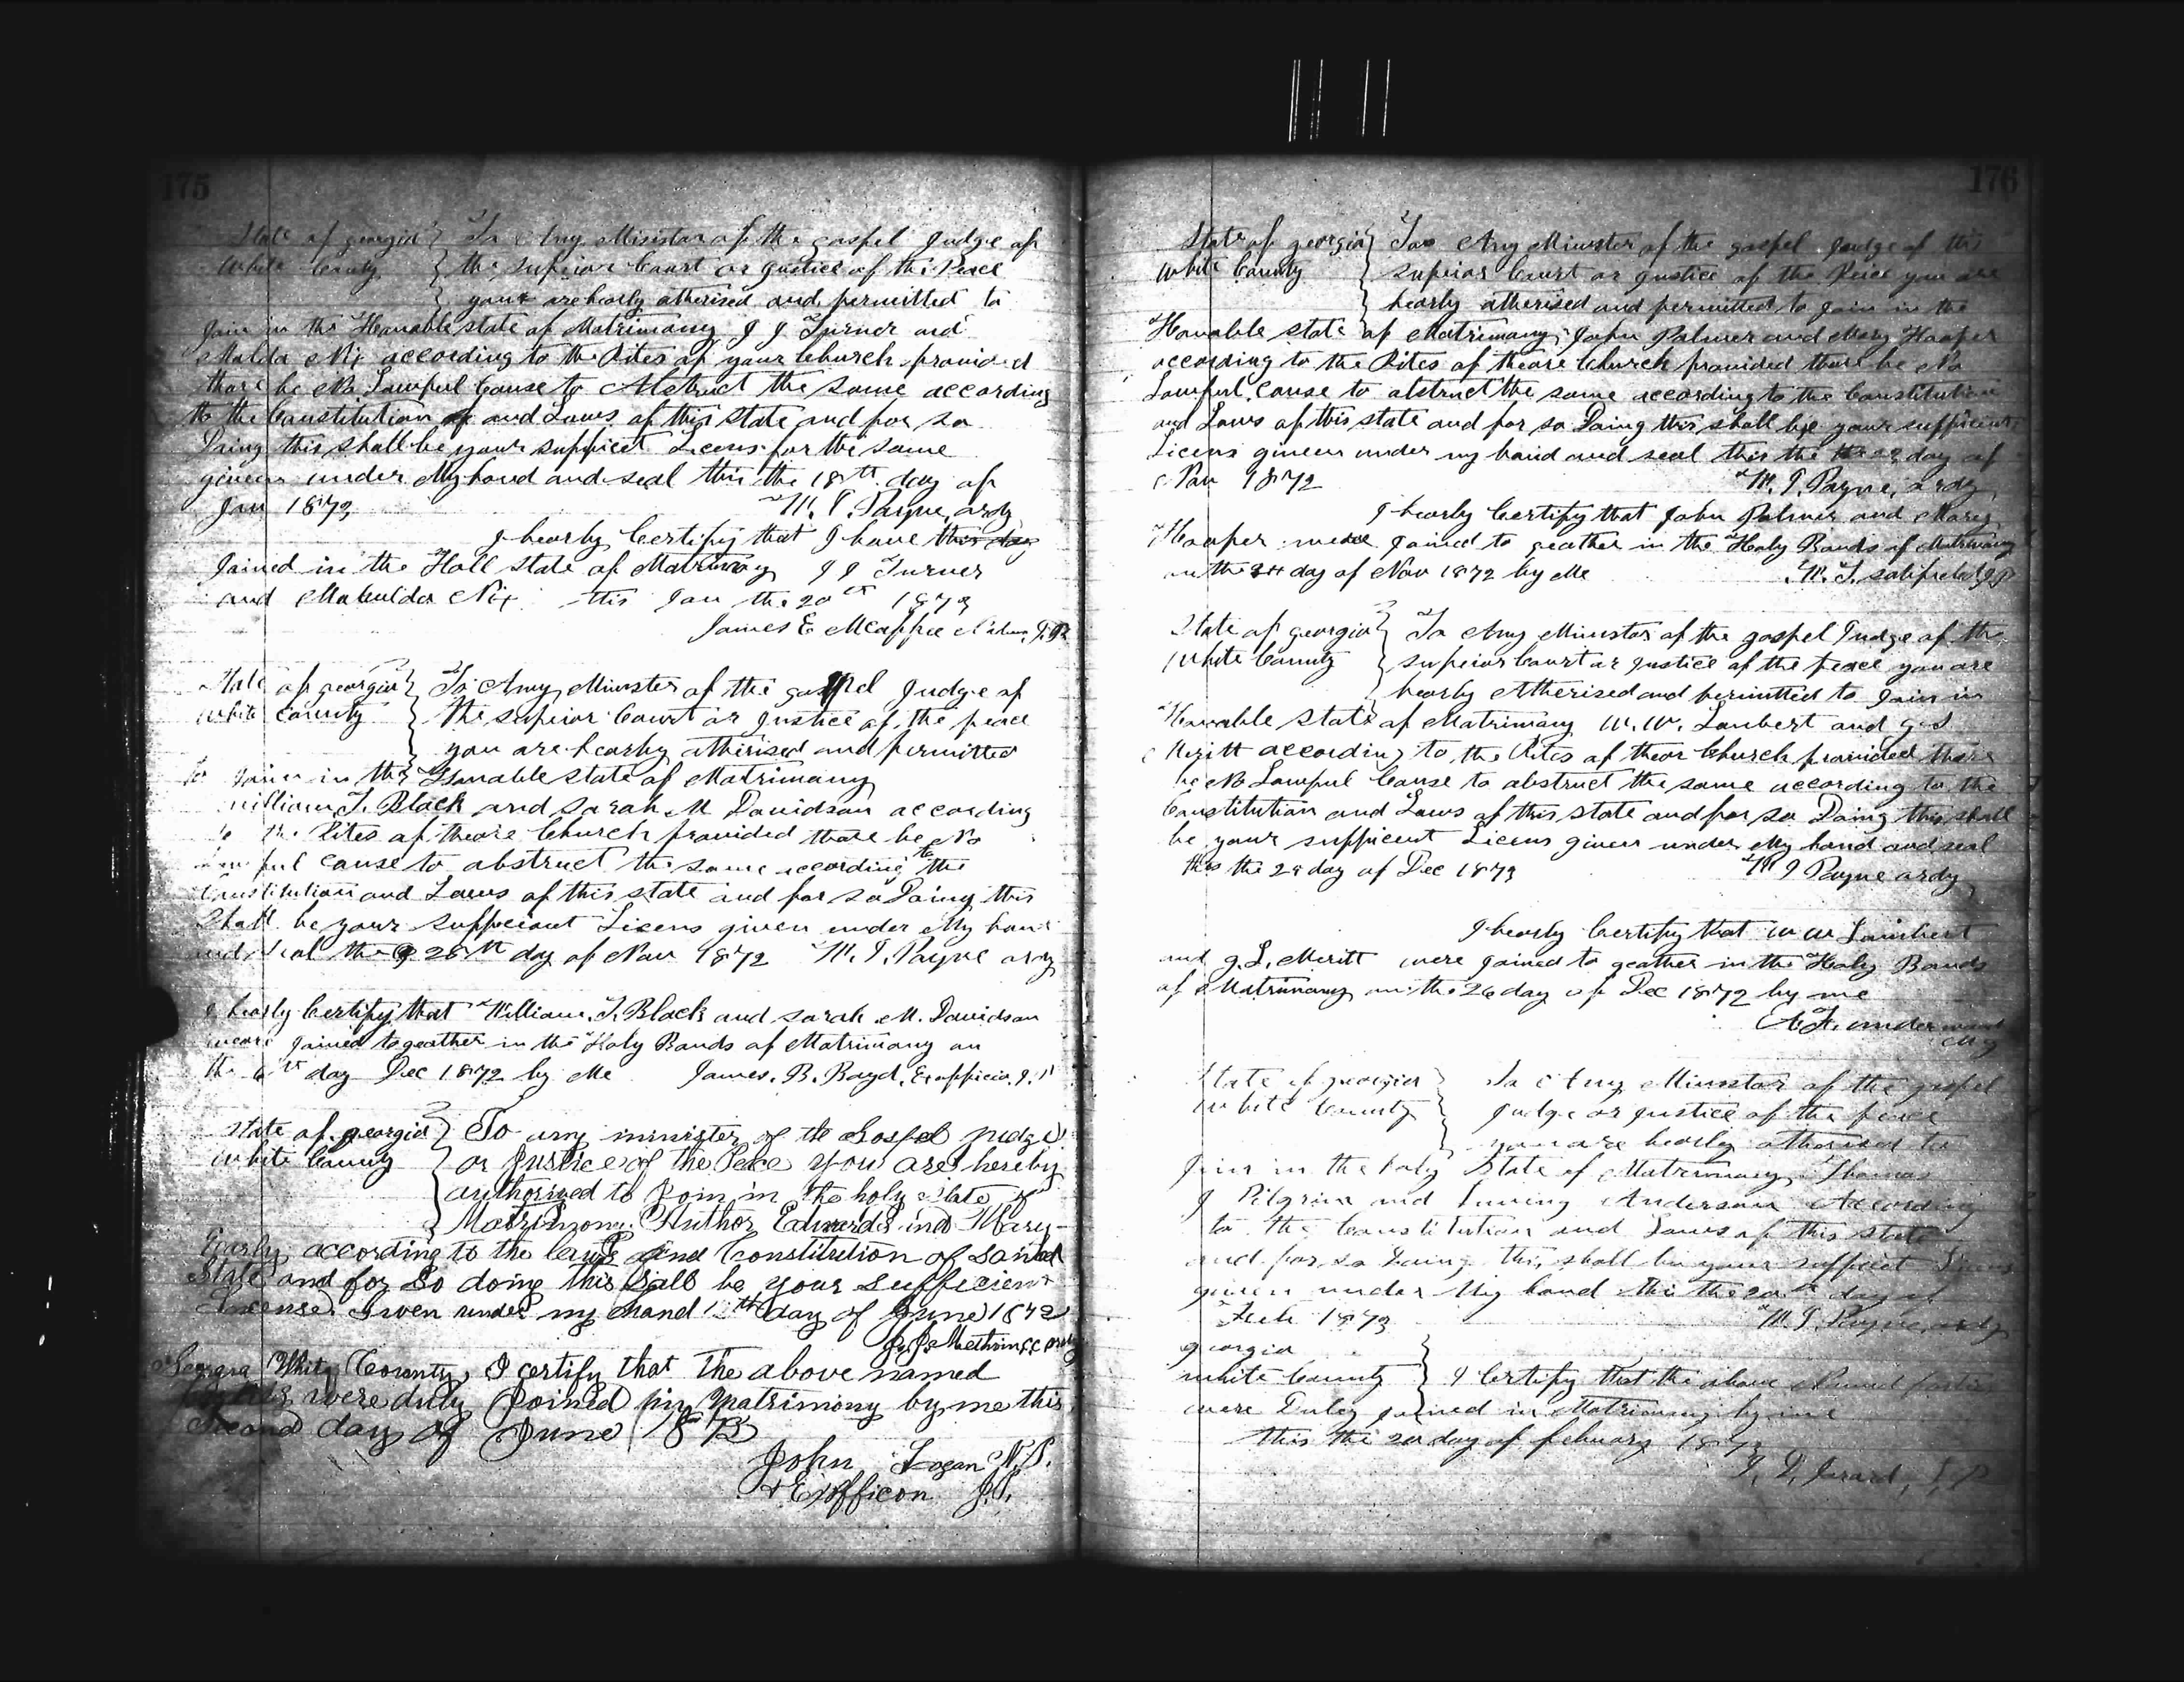 175
State of georgia } To Any Minister of the gospel Judge of
White County { the supirior Court or Justice of the Peace
your are hearby atherised and permitted to
Join in the Honable state of Matrimony J J Turner and
Malda Nix according to the Rites of your Church provided
thare be No Lawful Cause to Abstruct the same according
to the Constitution of and Laws of this state and for so
Doing this shall be your suppicet Licens for the same
given under My hand and seal this the 18th day of
Jan 1873 M. T. Payne, ordy
I hearby Certify that I have this day
Joined in the Holl state of Matrimony J J Turner
and Mahulda Nix this Jan the 20th 1873
James E Meaffee J.P.
State of georgia } To Any Minister of the gospel Judge of
White County { the supirior Court or Justice of the peace
you are hearby atherised and permitted
to Join in the Honable state of Matrimony
William T. Black and Sarah M Davidson according
to the Rites of theare Church provided thare be No
Lawful cause to abstruct the same according to the
Constitution and Laws of this state and for so Doing this
Shall be your suffecient Licens given under My hand
and seal the 28th day of Nov 1872 M. T. Payne ordy
I hearby Certify that William. T. Black and Sarah M. Davidson
weare Joined togeather in the Holy Bands of Matrimony on
the 6th day Dec 1872 by Me James. B. Boyd, Exofficio, J. P
State of georgia } To any minister of the Gospel Judge
White County { or Justice of the Peace you are hereby
authorized to Join in the holy State of
Matrimony Author Edwards and Mary
Early according to the laws and Constitution of Said
State and for So doing this Sall be your Sufficient
License. Given under my hand 12th day of June 1872
Georgia White County, I certify that the above named
parties were duly Joined in Matrimony by me this
Second day of June 1873
John Logan N.P.
& Exofficon J.P.
176
State of georgia } Too Any Minister of the gospel Judge of the
White County { supirior Court or Justice of the Peace you are
hearby atherised and permitted to Join in the
Honable state of Matrimony, John Palmer and Mary Hooper
according to the Rites of theare Church provided thare be No
Lawful Cause to abstruct the same according to the Constitution
and Laws of this state and for so Doing this shall be your sufficient
Licens given under my hand and seal this the 22 day of
Nov 1872 M. T. Payne, ordy
I hearby Certify that John Palmer and Mary
Hooper weare Joined to geather in the Holy Bands of Matrimony
on the 24 day of Nov 1872 by Me M. T. satifield J P
State of georgia } To Any Minister of the gospel Judge of the
White County { supirior Court or Justice of the peace you are
hearby Atherised and permitted to Join in
Honrable State of Matrimony W. W. Lambert and g. L
Meritt according to the Rites of thear Church provided thare
be No Lawful Cause to abstruct the same according to the
Constitution and Laws of this state and for so Doing this shall
be your sufficent Licens given under My hand and seal
this the 28 day of Dec 1873 M T Payne ordy
I hearby Certify that W W Lambert
and g. L. Meritt were Joined to geather in the Holy Bands
of Matrimony on the 26 day of Dec 1872 by me
A. F. underwood
Mg
State of georgia } To Any Minister of the gospel
White County { Judge or Justice of the peace
you are hearby athorised to
Join in the holy State of Matrimony Thomas
J Pilgrim and Anderson According
to the Constitution and Laws of this state
and for so Doing this shall be your sufficet Licens
given under My hand this the 20th day of
Feb 1873 M. T. Payne, ordy
georgia
White County } I Certify that the above Named parties
were Duley joined in Matrimony by me
this the 20 day of febuary 1873
J.P.